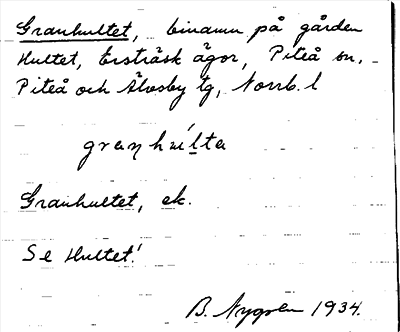 Granhultet, binamn på gården
Hultet, Ersträsk ägor, Piteå sn,
Piteå och Älvsby tg, Norrb. l
Granhultet, ek.
Se Hultet!
B. Nygren 1934.